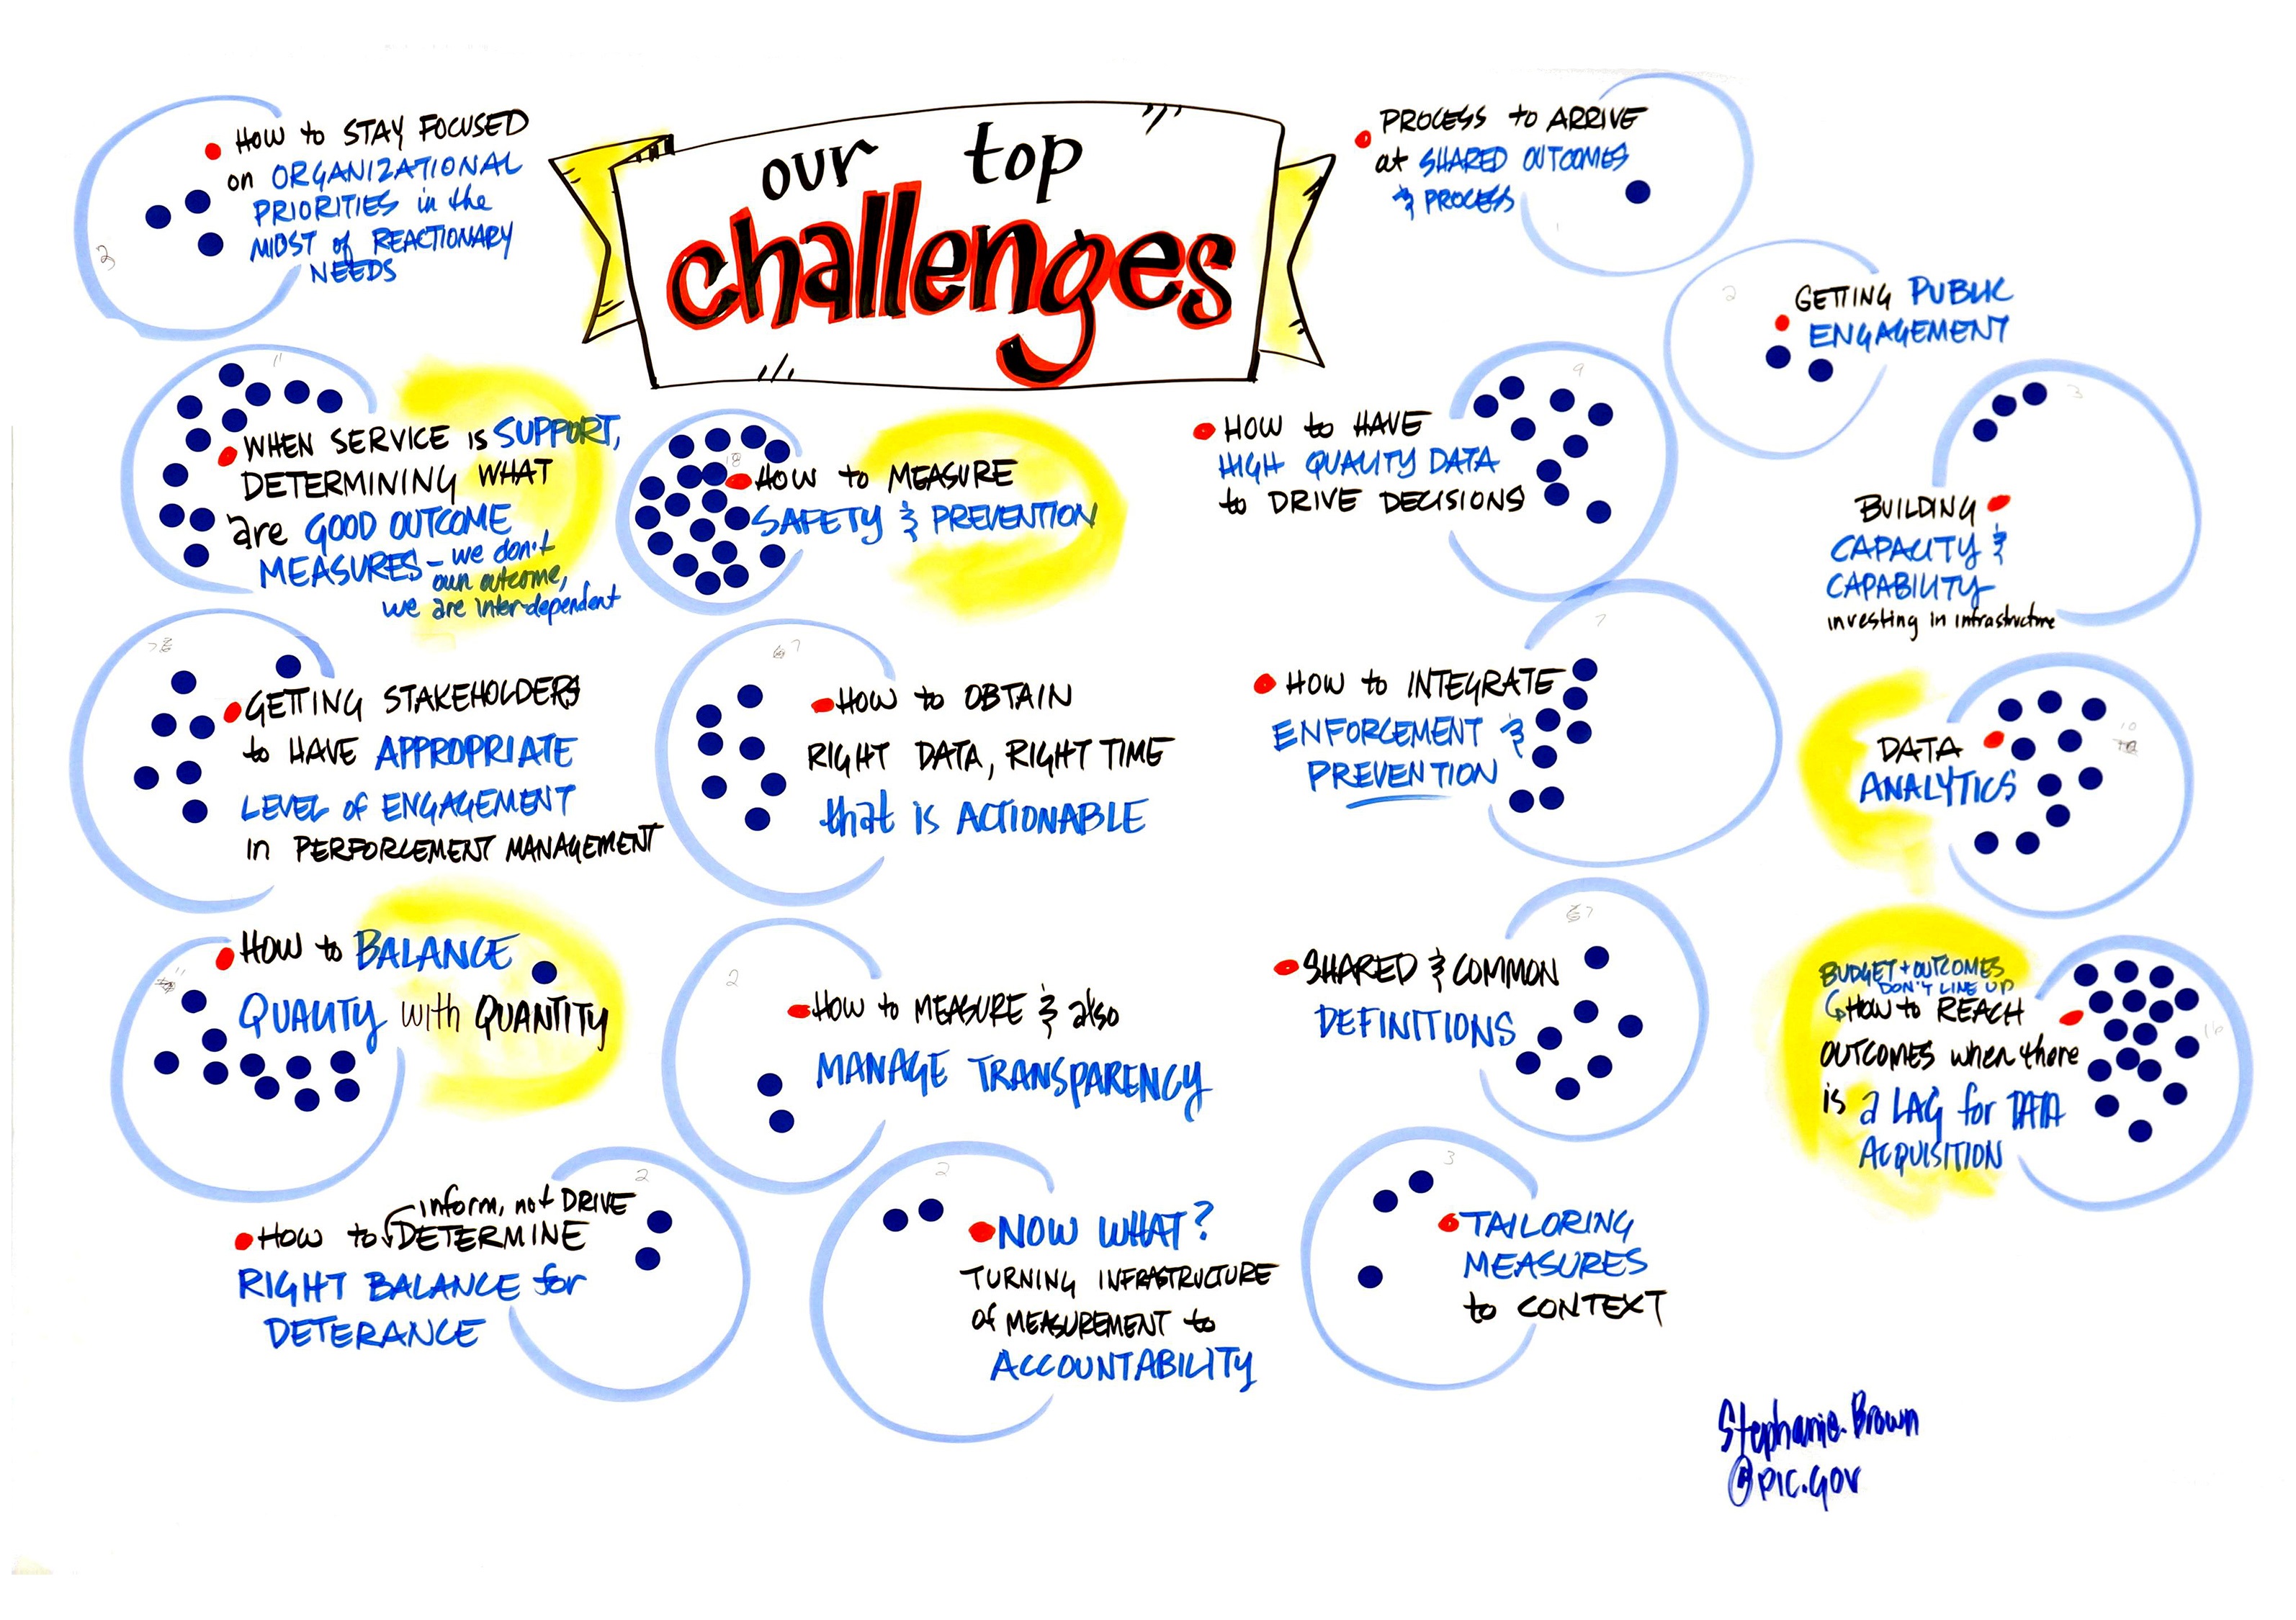 our top
challenges
HOW to STAY FOCUSED
on ORGANIZATIONAL
PRIORITIES in the
MIDST of REACTIONARY
NEEDS
3
PROCESS to ARRIVE
at SHARED OUTCOMES
& PROCESS
1
2
GETTING PUBLIC
ENGAGEMENT
11
WHEN SERVICE is SUPPORT,
DETERMINING WHAT
are GOOD OUTCOME
MEASURES - we don't
own outcome,
we are inter-dependent
18
HOW to MEASURE
SAFETY & PREVENTION
9
HOW to HAVE
HIGH QUALITY DATA
to DRIVE DECISIONS
3
BUILDING
CAPACITY &
CAPABILITY
investing in infrastructure
7
GETTING STAKEHOLDERS
to HAVE APPROPRIATE
LEVEL of ENGAGEMENT
in PERFORCEMENT MANAGEMENT
7
HOW to OBTAIN
RIGHT DATA, RIGHT TIME
that is ACTIONABLE
7
HOW to INTEGRATE
ENFORCEMENT &
PREVENTION
10
DATA
ANALYTICS
11
HOW to BALANCE
QUALITY with QUANTITY
2
HOW to MEASURE & also
MANAGE TRANSPARENCY
7
SHARED & COMMON
DEFINITIONS
16
BUDGET + OUTCOMES
DON'T LINE UP
HOW to REACH
OUTCOMES when there
is a LAG for DATA
ACQUISITION
2
inform, not DRIVE
HOW to DETERMINE
RIGHT BALANCE for
DETERANCE
2
NOW WHAT?
TURNING INFRASTRUCTURE
of MEASUREMENT to
ACCOUNTABILITY
3
TAILORING
MEASURES
to CONTEXT
Stephanie.Brown
@pic.gov